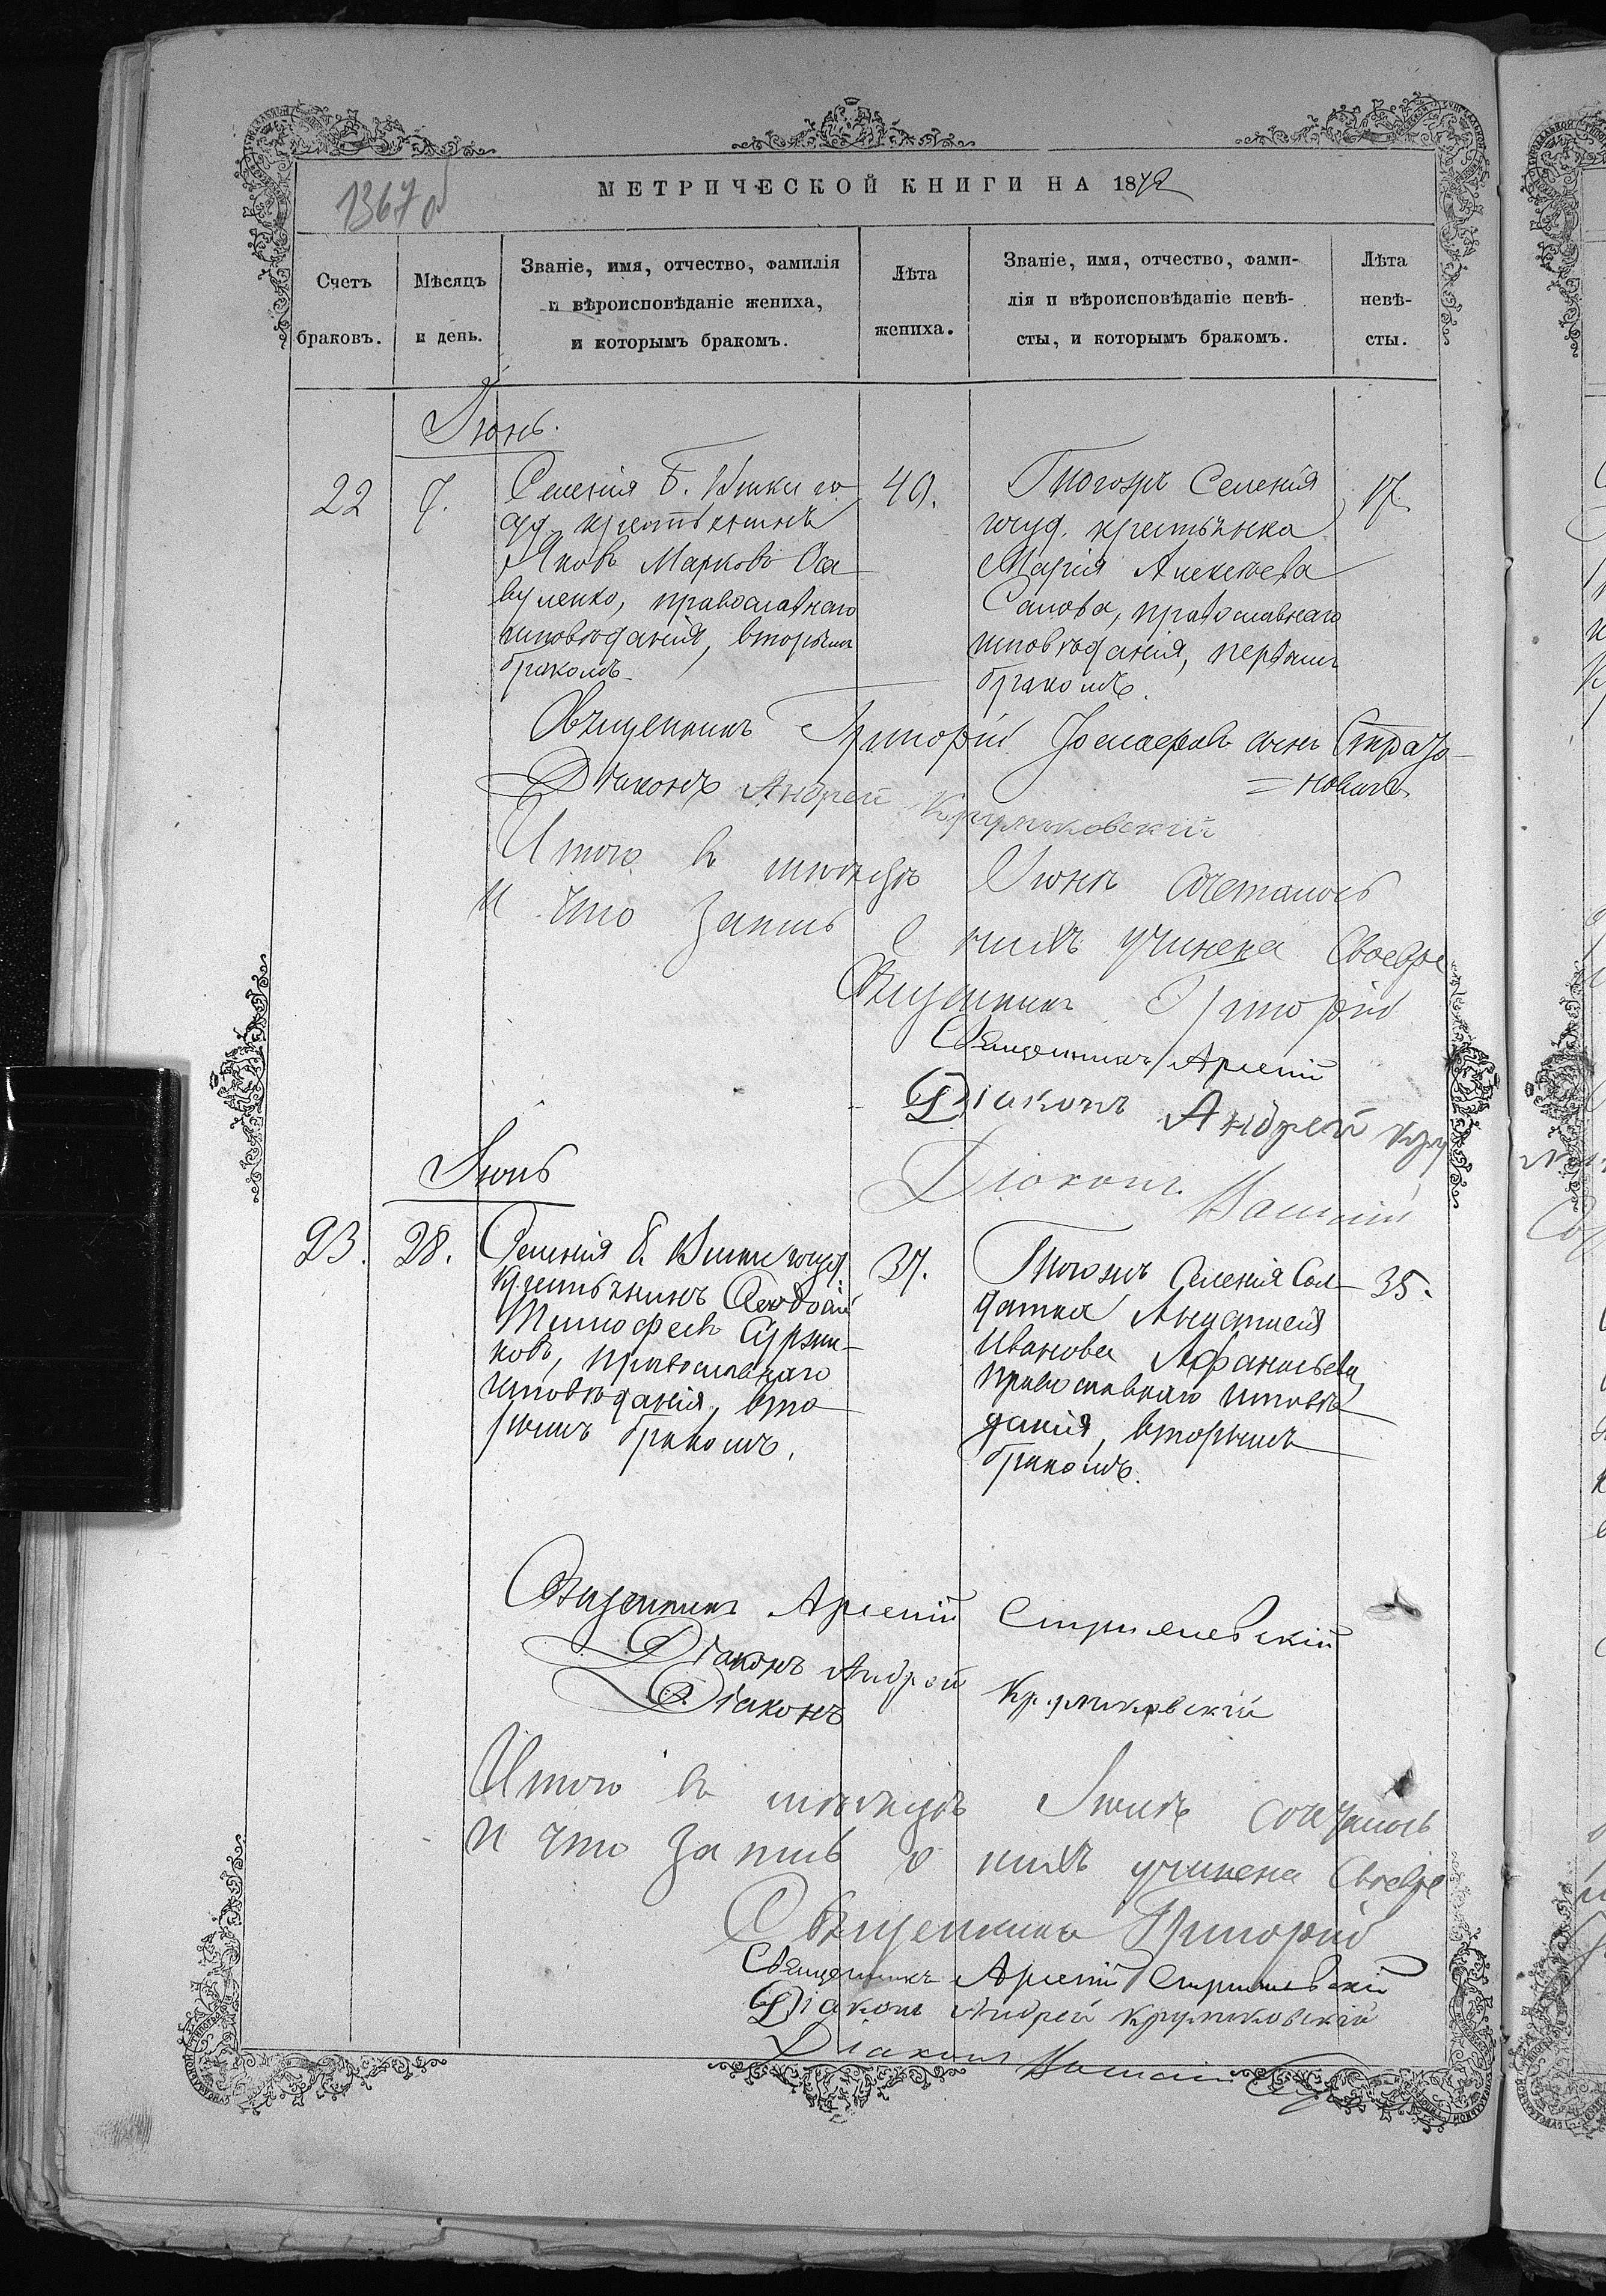 1367 об
МЕТРИЧЕСКОЙ КНИГИ НА 1872
Счетъ браковъ.
Мѣсяцъ и день.
Званіе, имя, отчество, фамилія
и вѣроисповѣданіе жениха,
и которымъ бракомъ.
Лѣта
жениха.
Званіе, имя, отчество, фами-
лія и вѣроисповѣданіе невѣ-
сты, и которымъ бракомъ.
Лѣта
невѣ-
сты.
Іюнь.
22
7.
Селенія Б. Виски го
суд. крестьянинъ
Яковъ Марковъ Оса
вуленко, православнаго
исповѣданія, вторымъ
бракомъ.
40.
Тогожъ Селенія
госуд. крестьянка
Марія Алексѣева
Сапова, православнаго
исповѣданія, первымъ
бракомъ.
17.
Священникъ Григорій
Діаконъ Андрей Кружковскій
Итого въ мѣсяцѣ Іюнѣ сочеталось
и что запись о нихъ учинена своевре
Священникъ Григорій
Священникъ Арсеній
Діаконъ Андрей Кру
Діаконъ
Іюль
23.
28.
Селенія Б. Виски госуд.
крестьянинъ Ѳеодосій
Тимофеевъ Суржи-
ковъ, православнаго
исповѣданія, вто
рымъ бракомъ.
37.
Тогожъ Селенія Сол-
датка Анастасія
Иванова Афанасьева,
православнаго исповѣ
данія, вторымъ
бракомъ.
35.
Священникъ Арсеній
Діаконъ Андрей Кружковскій
Діаконъ
Итого въ мѣсяцѣ Іюлѣ сочеталось
и что запись о нихъ учинена своевре
Священникъ Григорій
Священникъ Арсеній
Діаконъ Андрей Кружковскій
Діаконъ